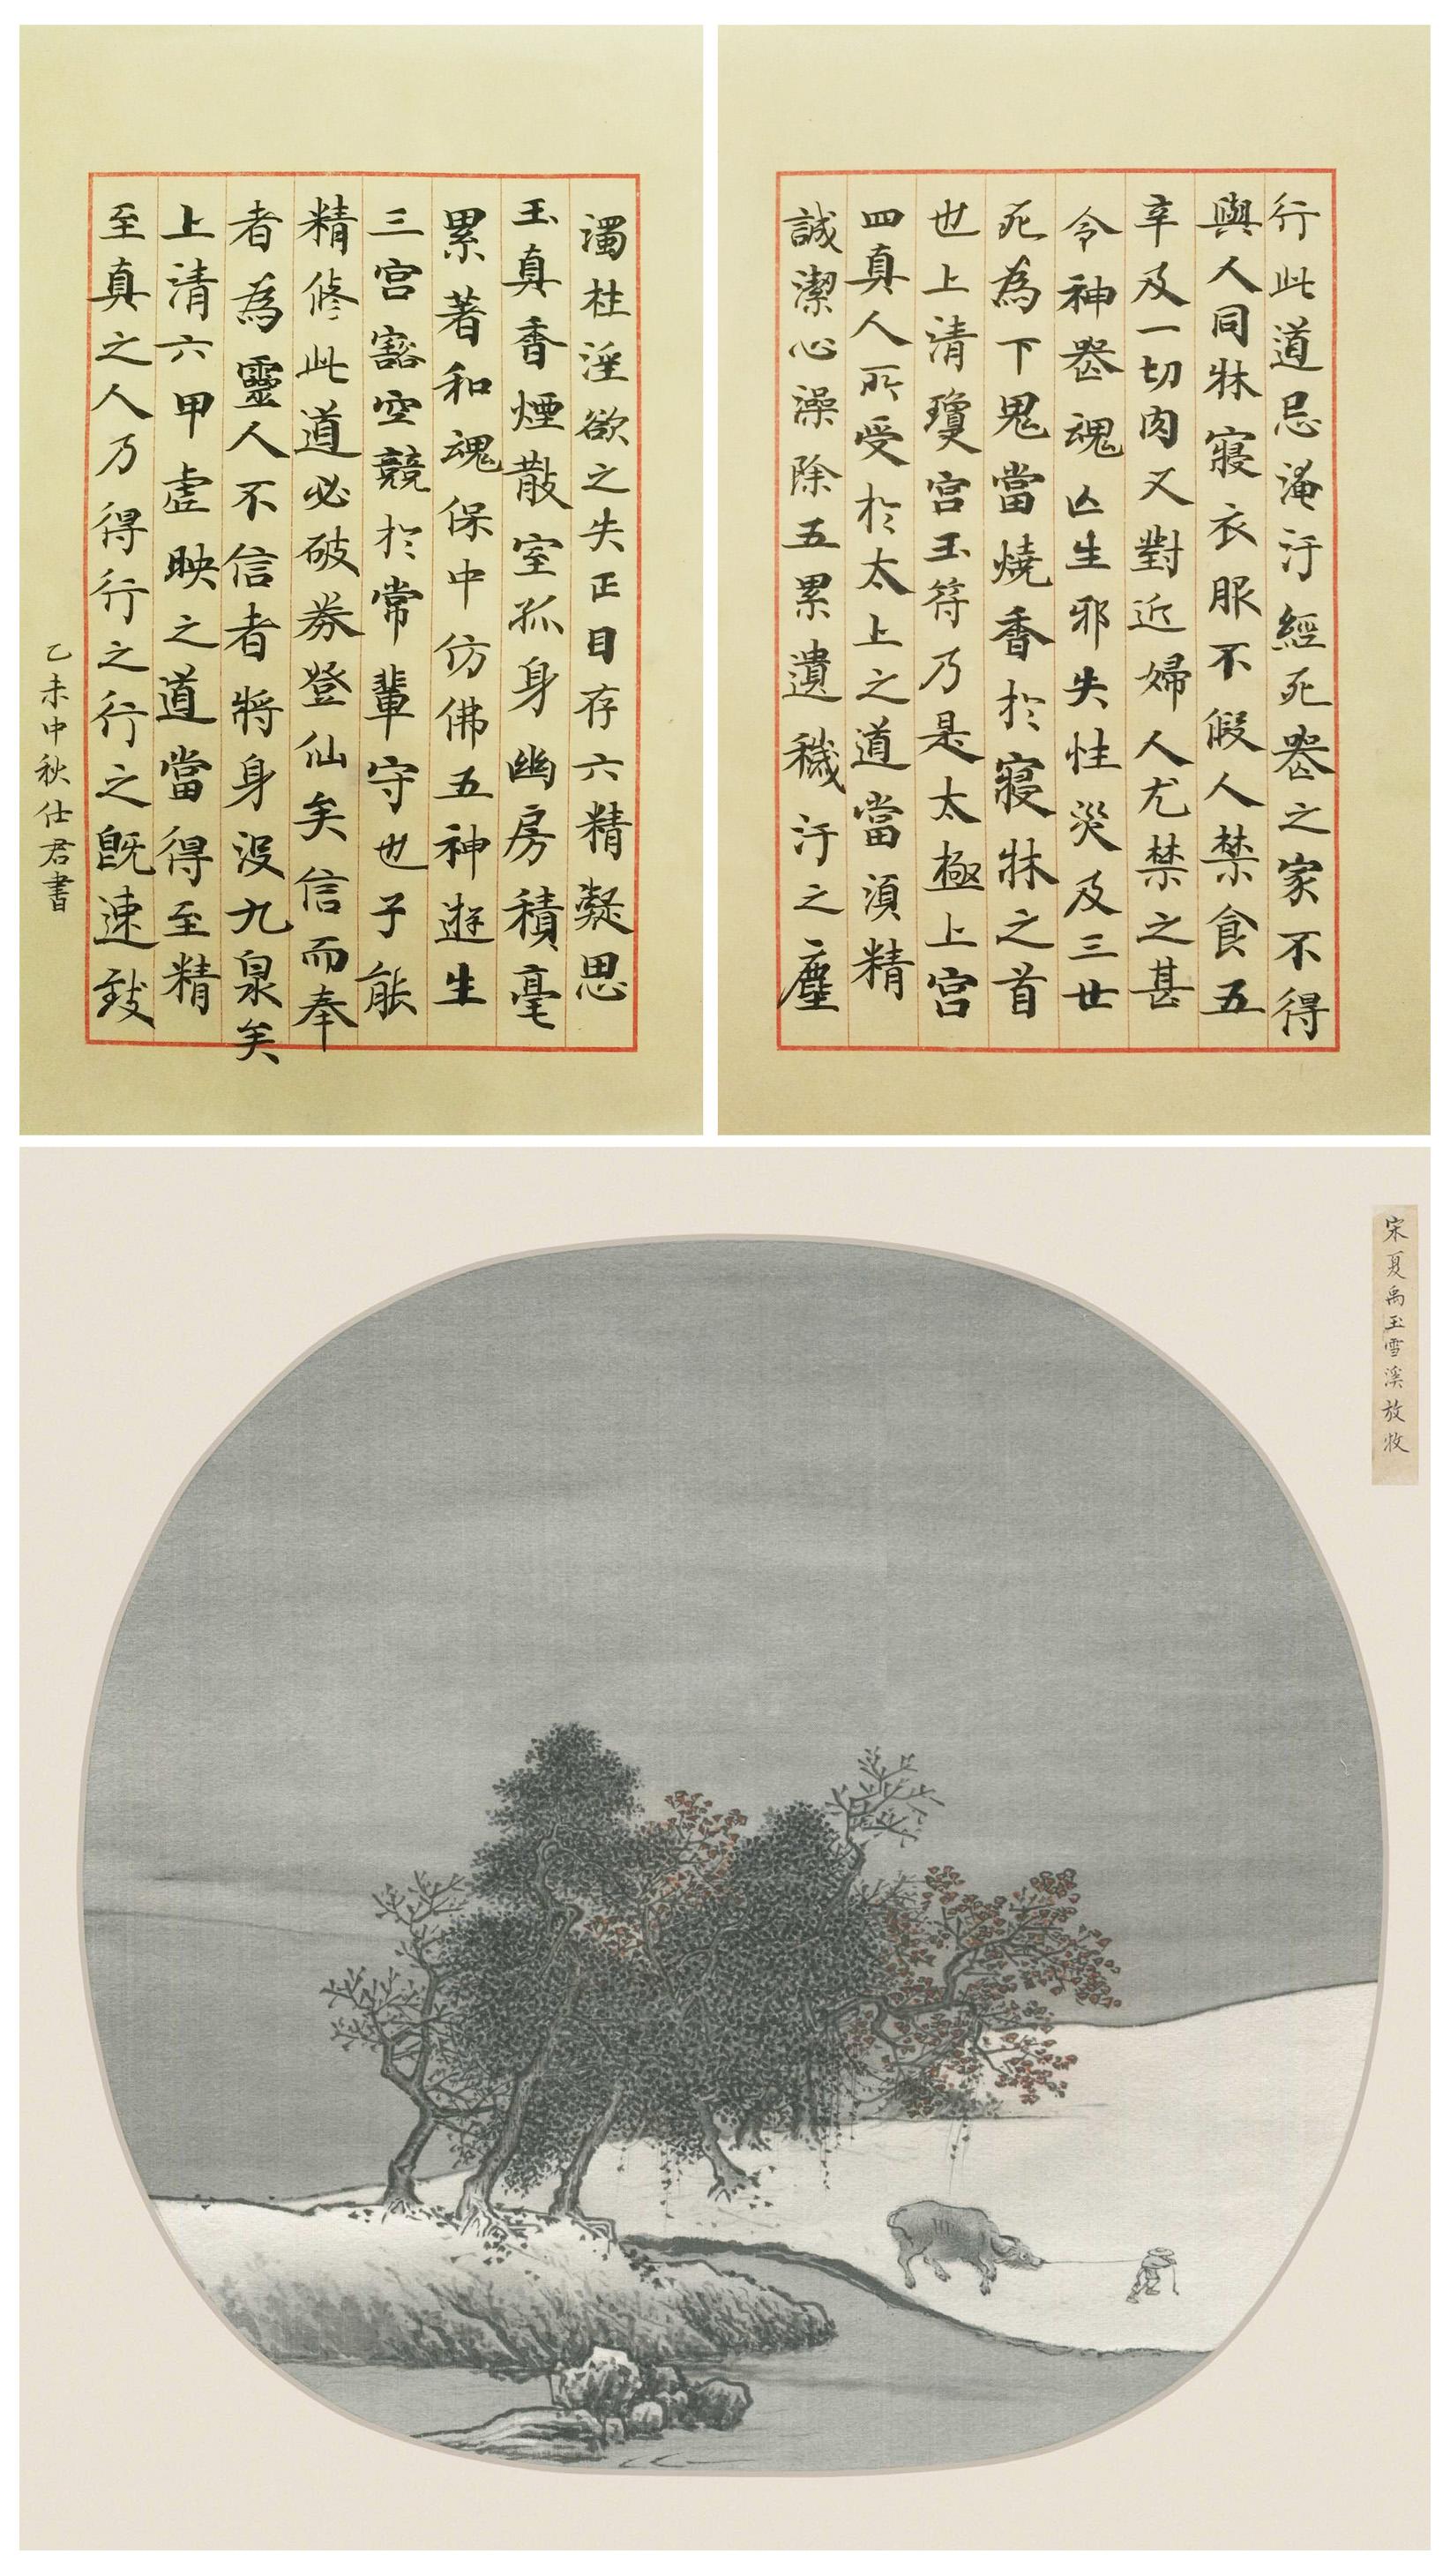 行此道忌淹汙經死喪之家不得
與人同牀寢衣服不假人禁食五
辛及一切肉又對近婦人尤禁之甚
令神喪魂亾生邪失性災及三世
死為下鬼當燒香於寢牀之首
也上清瓊宮玉符乃是太極上宮
四真人所受於太上之道當須精
誠潔心澡除五累遺穢汙之塵
濁杜淫欲之失正目存六精凝思
玉真香煙散室孤身幽房積毫
累著和魂保中仿佛五神遊生
三宮豁空競於常輩守也子能
精脩此道必破券登仙矣信而奉
者為靈人不信者將身沒九泉矣
上清六甲虛映之道當得至精
至真之人乃得行之行之既速致
乙未中秋仕君書
宋夏禹玉雪溪放牧